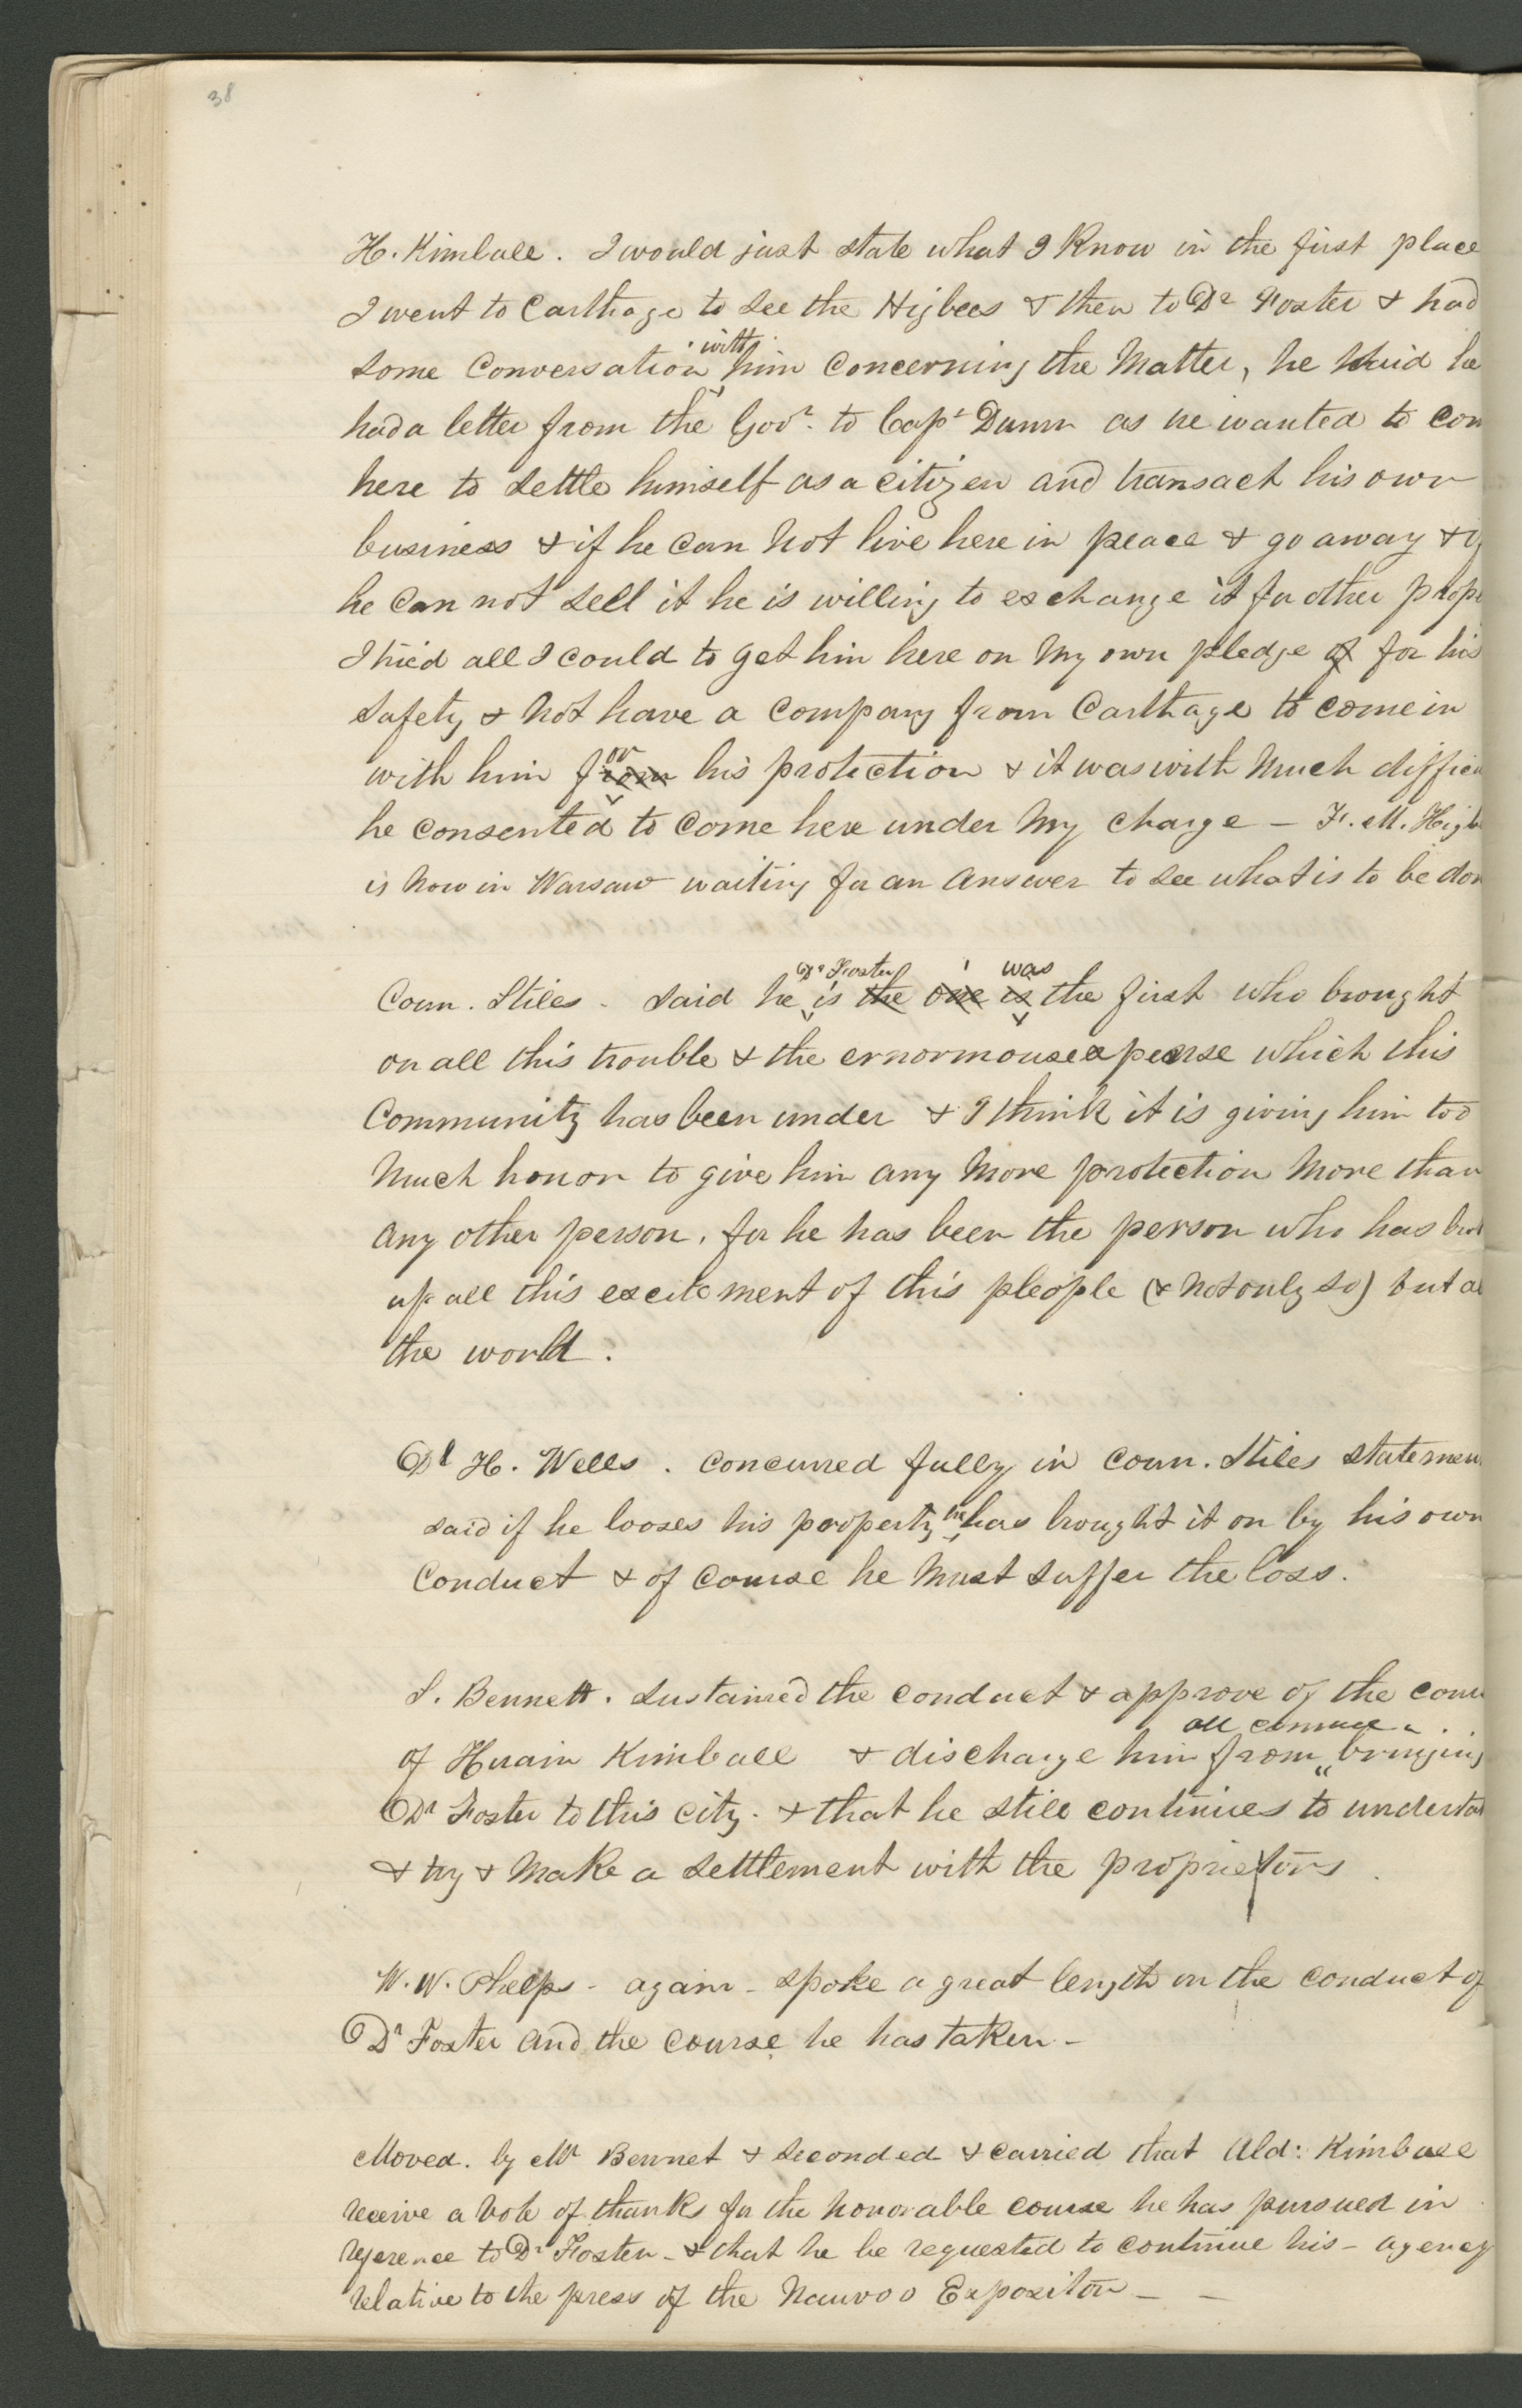 38
H. Kimball. I would just state what I Know in the first place
I went to Carthage to see the Higbees & then to Dr Foster & had
some Conversation with him Concerning the Matter, he said he
had a letter from the Govr. to Capt Dunn as he wanted to com
here to settle himself as a citizen and transact his own
business & if he Can Not live here in peace & go away & if
he Can not sell it he is willing to exchange it for other prope
I tried all I could to get him here on My own pledge of for his
safety & Not have a Company from Carthage to come in
with him from or his protection & it was with Much difficu
he Consented to Come here under My Charge - F. M. Higb
is Now in Warsaw waiting for an Answer to see what is to be don
Coun. Stiles - said he Dr Foster is the one is was the first who brought
on all this trouble & the ernormouse expense which this
Community has been under & I think it is giving him too
Much honor to give him any More protection More than
any other person, for he has been the person who has bro
up all this excitement of this pleople (& Not only so) but al
the world.
Dl H. Wells. Concurred fully in Coun. Stiles statemen
said if he looses his property he has brought it on by his own
Conduct & of Course he Must suffer the loss.
S. Bennett. Sustained the Conduct & approve of the cou
of Hiram Kimball & discharge him from all censure in bringing
Dr Foster to this City. & that he still continues to understa
& try & Make a settlement with the proprietors.
W. W. Phelps - again - spoke a great length on the Conduct of
Dr Foster and the Course he has taken -
Moved. by Mr Bennet & seconded & carried that Ald: Kimball
receive a Vote of thanks for the honorable course he has pursued in
reference to Dr Foster - & that he be requested to continue his - agency
relative to the press of the Nauvoo Expositor - -